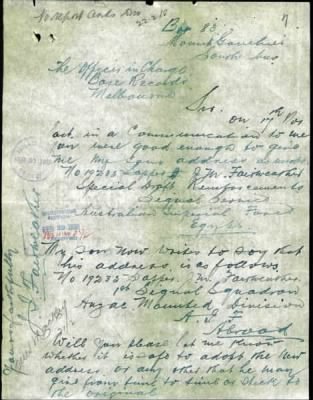 No report Casls Dec
22-2-18
Box 83
Mount Gambier
South Aus
The Officer in Charge
Base Records
Melbourne
Sir
on 17th Nov
last in a Communication to me
you were good enough to give
me my sons address as under
No 19236 Sapper J. M. Fairweather
Special Draft Reinforcements
Signal Service
Australian Imperial Force
Egypt
My son now writes to say that
his address is as follows
No 19236 Sapper J. M. Fairweather
1st Signal Squadron
Anzac Mounted Division
A. I. F
Abroad
Will you please let me know
whether it is safe to adopt the new
address or any other that he may
give from time to time or stick to
the original
Yours faithfully
J. Fairweather